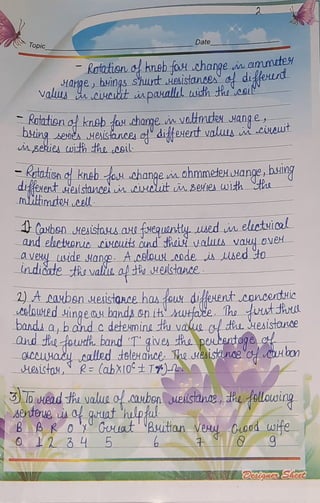 2
Topic Date
- Rotation of knob for change in ammeter
range, brings shunt resistances of different
values in circuit in parallel with the coil
- Rotation of knob for change in voltmeter range,
bring series resistances of different values in circuit
in series with the coil.
- Rotation of knob for change in ohmmeter range, bring
different resistances in circuit in series with the
multimeter cell.
1) Carbon resistors are frequently used in electrical
and electronic circuits and their values vary over
a very wide range. A colour code is used to
indicate the value of the resistance.
2) A carbon resistance has four different concentric
coloured rings or bands on its surface. The first three
bands a, b and c determine the value of the resistance
and the fourth band 'T' gives the percentage of
accuracy called tolerance. The resistance of carbon
resistor, R = (ab×10c ± T%)Ω.
3) To read the value of carbon resistance, the following
sentence is of great helpful
B B R O Y Great Britian Very Good wife
0 1 2 3 4 5 6 7 8 9
Designer Sheet